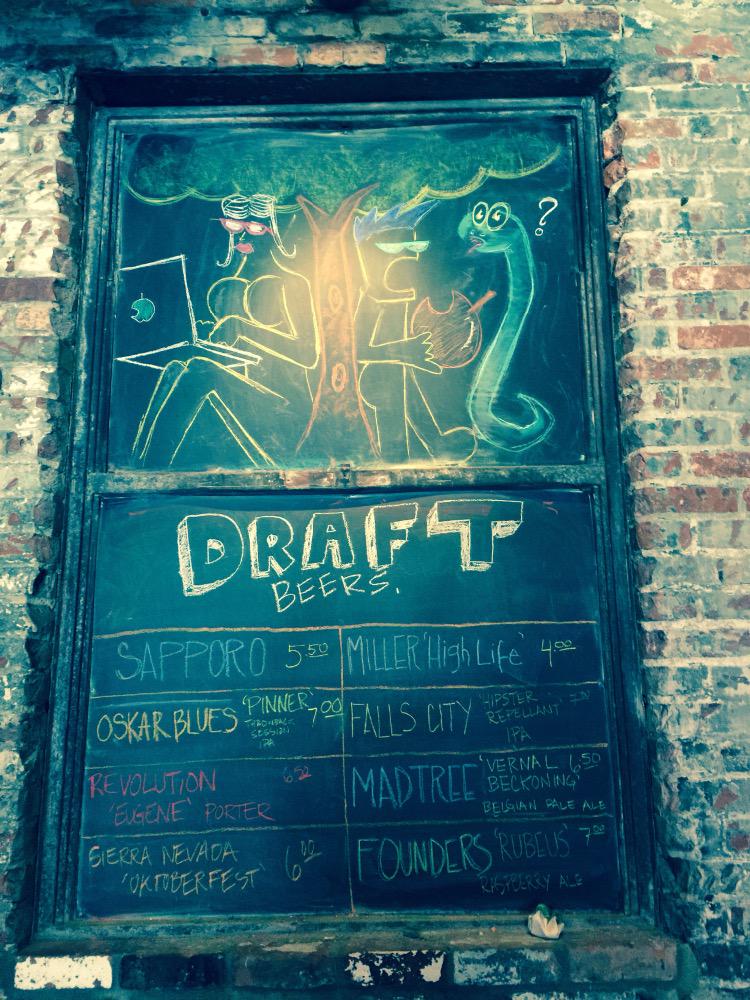 ?
DRAFT
BEERS.
SAPPORO 5.50
MILLER 'High Life' 4.00
OSKAR BLUES 'PINNER' 7.00
THROWBACK
SESSION
IPA
FALLS CITY 'HIPSTER
REPELLANT'
IPA
REVOLUTION
'EUGENE' PORTER
MADTREE 'VERNAL 6.50
BECKONING'
BELGIAN PALE ALE
SIERRA NEVADA 6.00
'OKTOBERFEST'
FOUNDERS 'RUBEUS' 7.00
RASPBERRY ALE